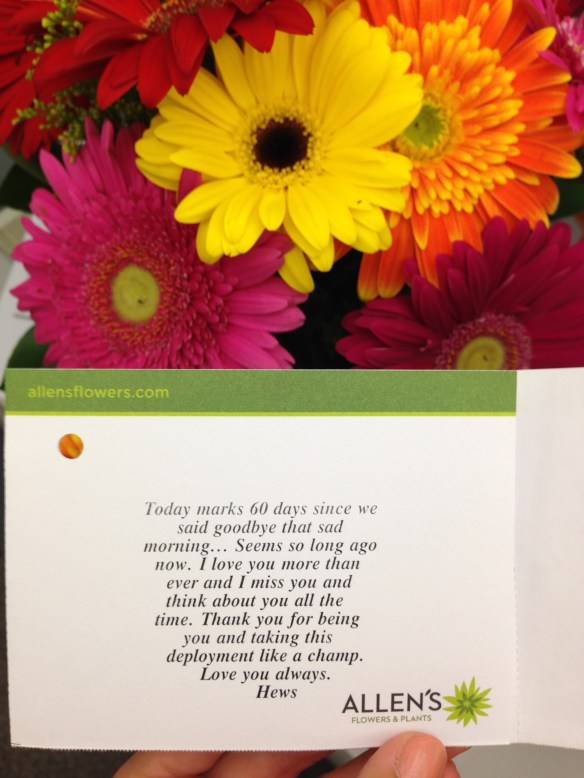 allensflowers.com
Today marks 60 days since we
said goodbye that sad
morning... Seems so long ago
now. I love you more than
ever and I miss you and
think about you all the
time. Thank you for being
you and taking this
deployment like a champ.
Love you always.
Hews
ALLEN'S
FLOWERS & PLANTS